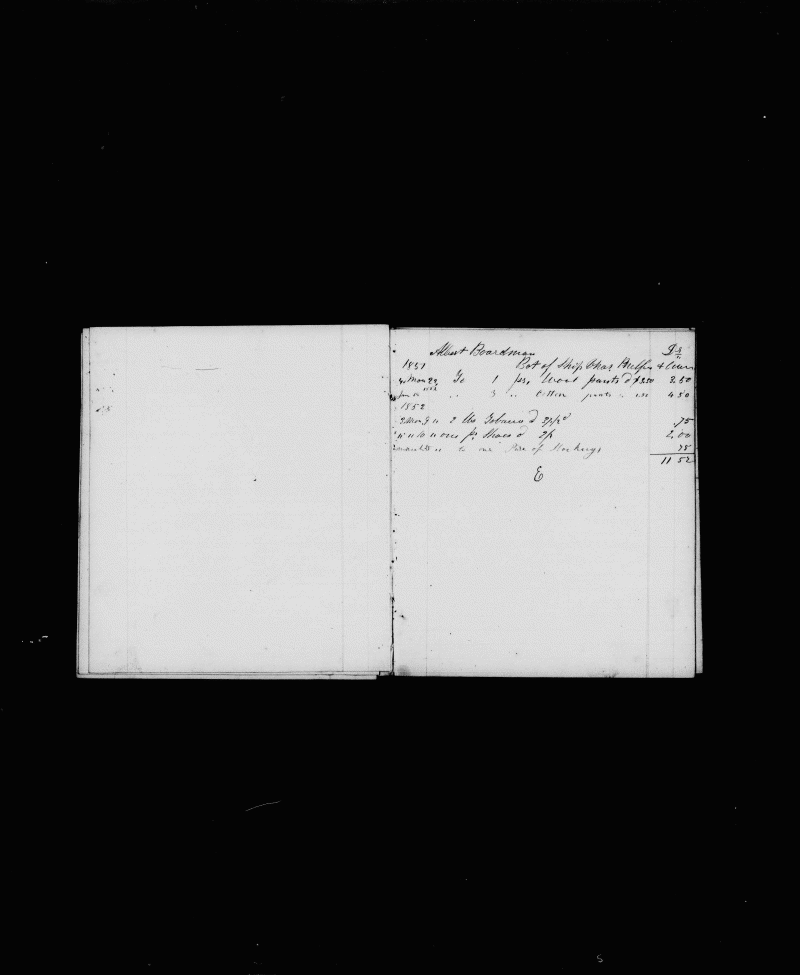 Albert Boardman Dr
1851 Bot of Ship Chas Phelps & Owners
Mon 22 To 1 prs Wool pants @ $3.50 3.50
3 " Cotton pants " 1.50 4.50
1852
2 lbs Tobacco @ .75
" 10 " one pr Shoes @ 2,00
to one Pair of Stockings 75
11 52
E